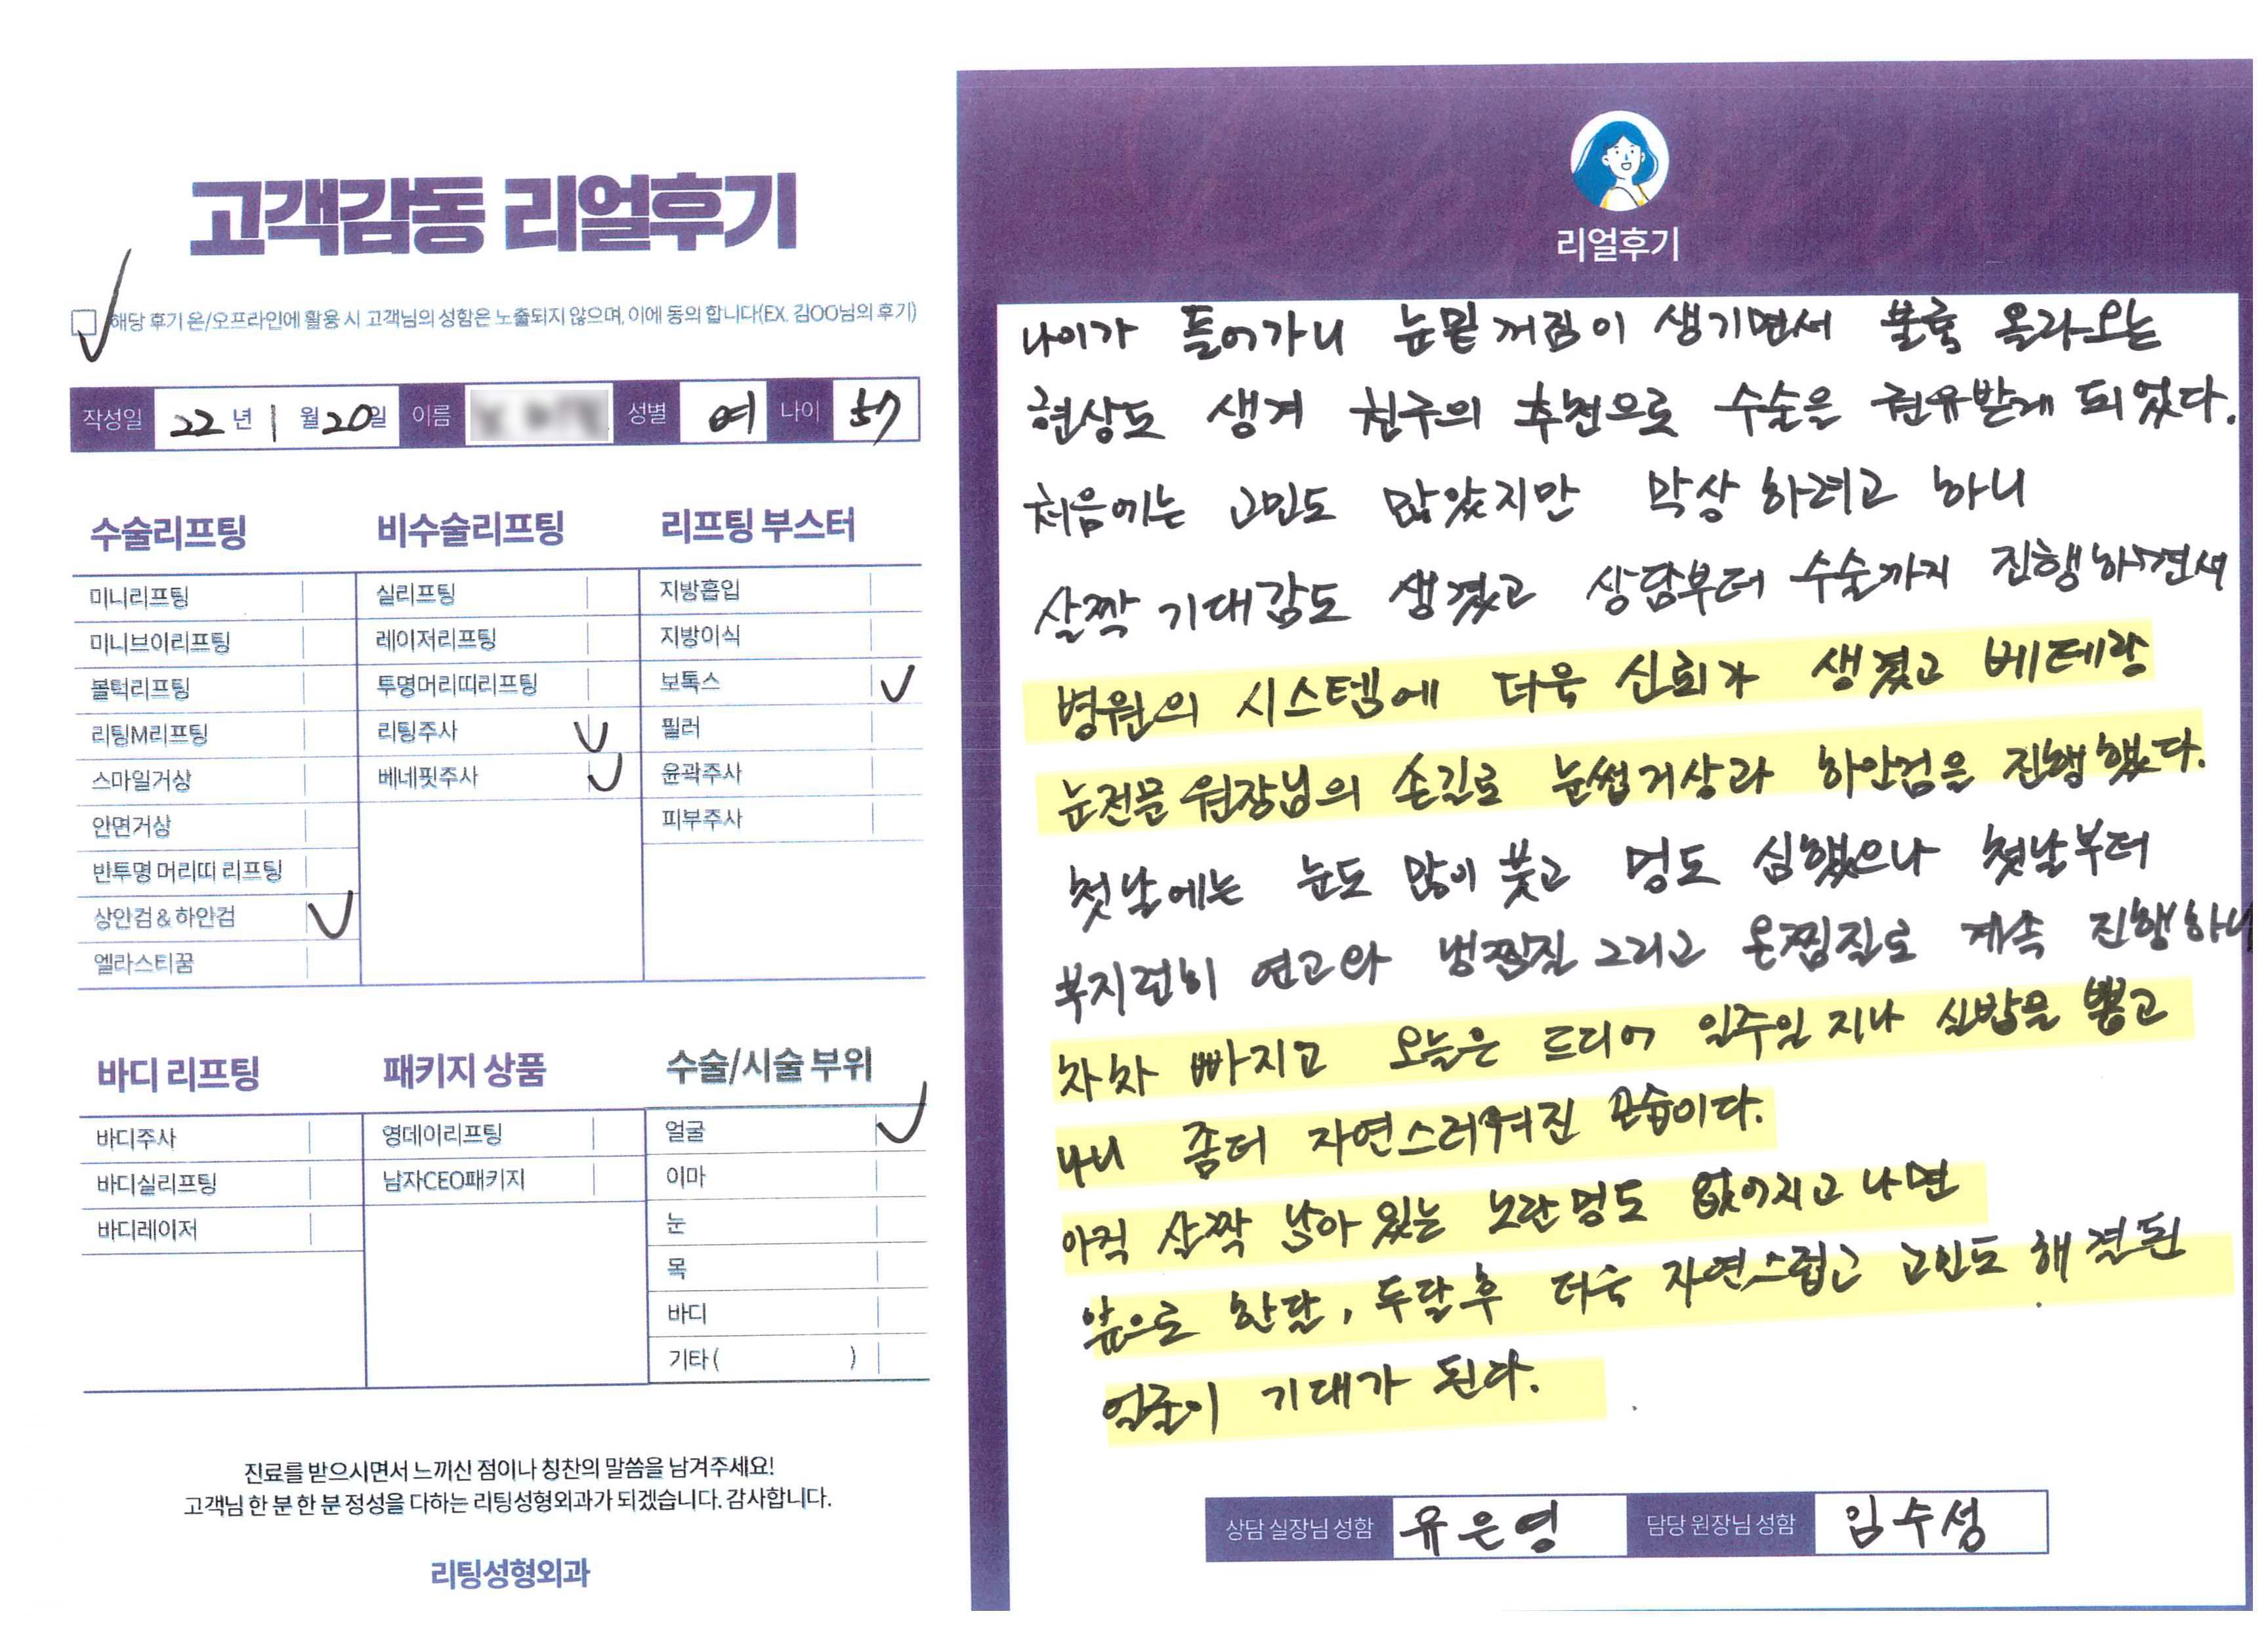 고객감동 리얼후기
해당 후기 온/오프라인에 활용 시 고객님의 성함은 노출되지 않으며, 이에 동의 합니다(EX. 김OO님의 후기)
작성일 22 년 1 월 20 일 이름 성별 여 나이 57
수술리프팅
미니리프팅
미니브이리프팅
볼턱리프팅
리팅M리프팅
스마일거상
안면거상
반투명 머리띠 리프팅
상안검 & 하안검
엘라스티꿈
비수술리프팅
실리프팅
레이저리프팅
투명머리띠리프팅
리팅주사
베네핏주사
리프팅 부스터
지방흡입
지방이식
보톡스
필러
윤곽주사
피부주사
바디 리프팅
바디주사
바디실리프팅
바디레이저
패키지 상품
영데이리프팅
남자CEO패키지
수술/시술 부위
얼굴
이마
눈
목
바디
기타 ( )
진료를 받으시면서 느끼신 점이나 칭찬의 말씀을 남겨주세요!
고객님 한 분 한 분 정성을 다하는 리팅성형외과가 되겠습니다. 감사합니다.
리팅성형외과
리얼후기
나이가 들어가니 눈밑 꺼짐이 생기면서 불룩 올라오는
현상도 생겨 친구의 추천으로 수술은 권유받게 되었다.
처음에는 고민도 많았지만 막상 하려고 하니
살짝 기대감도 생겼고 상담부터 수술까지 진행하면서
병원의 시스템에 더욱 신뢰가 생겼고 베테랑
눈전문 원장님의 손길로 눈썹거상과 하안검을 진행했다.
첫날에는 눈도 많이 붓고 멍도 심했으나 첫날부터
부지런히 연고와 냉찜질 그리고 온찜질로 계속 진행하니
차차 빠지고 오늘은 드디어 일주일 지나 실밥을 뽑고
나니 좀더 자연스러워진 모습이다.
아직 살짝 남아 있는 노란멍도 없어지고 나면
앞으로 한달, 두달후 더욱 자연스럽고 고민도 해결된
얼굴이 기대가 된다.
상담 실장님 성함 유은영 담당 원장님 성함 임수성